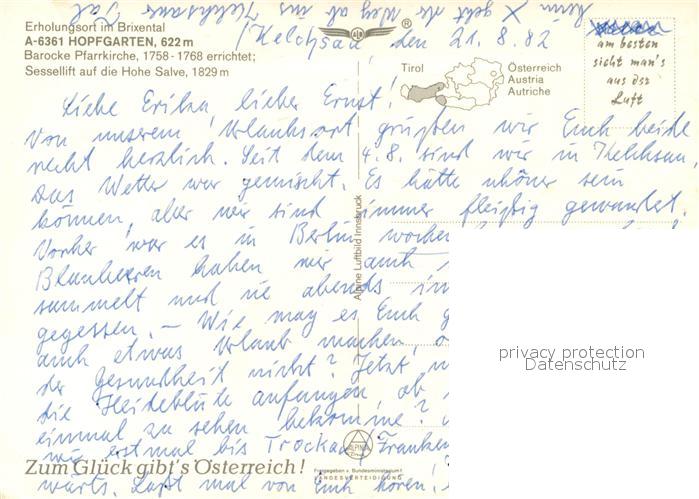 Beim X geht der Weg ab ins Kelchsauer Tal
Erholungsort im Brixental
A-6361 HOPFGARTEN, 622 m
Barocke Pfarrkirche, 1758 - 1768 errichtet;
Sessellift auf die Hohe Salve, 1829 m
ALPINE
®
Kelchsau, den 21. 8. 82
Tirol
Österreich
Austria
Autriche
am besten
sieht man's
aus der
Luft
Liebe Erika, lieber Ernst!
Von unserem Urlaubsort grüßen wir Euch beide
recht herzlich. Seit dem 4. 8. sind wir in Kelchsau.
Das Wetter war gemischt. Es hätte schöner sein
können, aber wir sind immer fleißig gewandert.
Vorher war es in Berlin
Blaubeeren haben wir auch
sammelt und sie abends im
gegessen. – Wie mag es Euch g
auch etwas Urlaub machen, o
der Gesundheit nicht? Jetzt,
die Heideblüte anfangen, ob
einmal zu sehen bekomme?
wir erstmal bis Trockau, Franken
wärts. Laßt mal von Euch hören!
Alpine Luftbild Innsbruck
privacy protection
Datenschutz
Zum Glück gibt's Österreich!
Freigegeben v. Bundesministerium f.
LANDESVERTEIDIGUNG